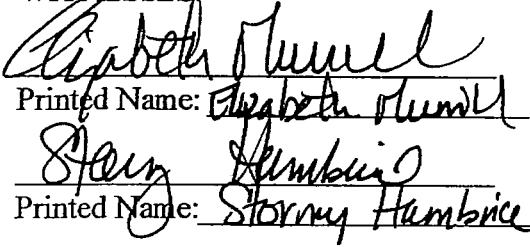 Elizabeth Murrill
Printed Name: Elizabeth Murrill
Stormy Hambrice
Printed Name: Stormy Hambrice